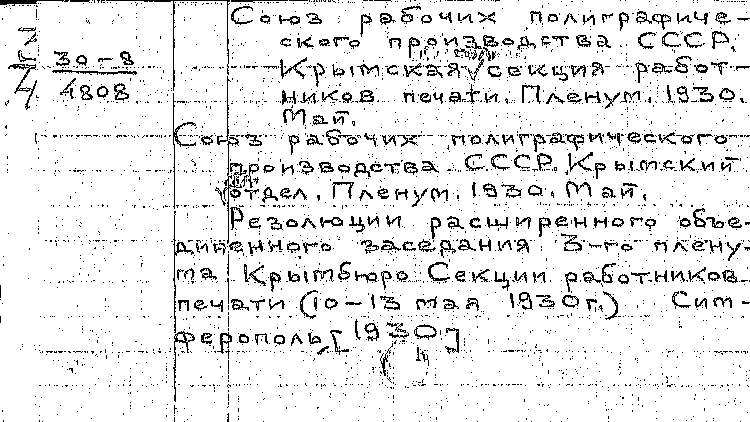 Союз рабочих полиграфиче-
ского производства СССР.
Крымская секция работ-
30-8
ников печати. Пленум. 1930.
4808
Май.
Союз рабочих полиграфического
производства СССР. Крымский
отдел. Пленум. 1930. Май.
Резолюции расширенного объе-
диненного заседания 3-го плену-
ма Крымбюро Секции работников
печати (10-13 мая 1930г.) Сим-
ферополь, [1930]